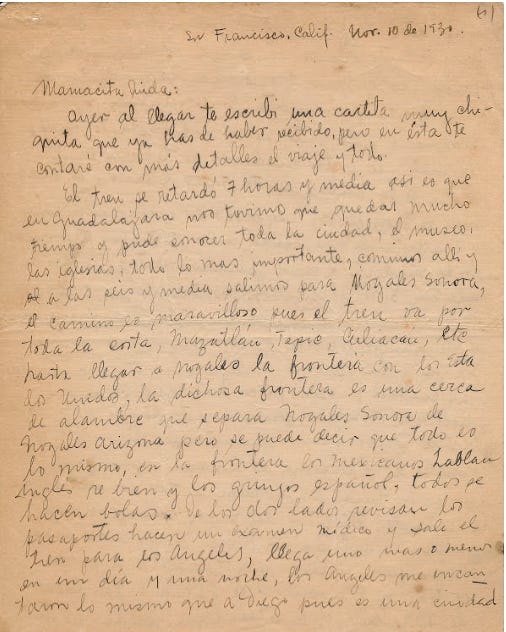 Sn Francisco, Calif. Nov. 10 de 1930.
Mamacita linda:
Ayer al llegar te escribí una cartita muy chi-
quita que ya has de haber recibido, pero en ésta te
contaré con más detalles el viaje y todo.
El tren se retardó 7 horas y media así es que
en Guadalajara nos tuvimos que quedar mucho
tiempo y pude conocer toda la ciudad, el museo,
las iglesias, todo lo mas importante, comimos allí y
a las seis y media salimos para Nogales Sonora,
el camino es maravilloso pues el tren va por
toda la costa, Mazatlán, Tepic, Culiacan, etc
hasta llegar a Nogales la frontera con los Esta
dos Unidos, la dichosa frontera es una cerca
de alambre que separa Nogales Sonora de
Nogales Arizona pero se puede decir que todo es
lo mismo, en la frontera los mexicanos hablan
inglés re bien y los gringos español, todos se
hacen bolas. De los dos lados revisan los
pasaportes hacen un examen médico y sale el
tren para los Angeles, llega uno mas o menos
en un día y una noche, los Angeles me encan
taron lo mismo que a Diego pues es una ciudad